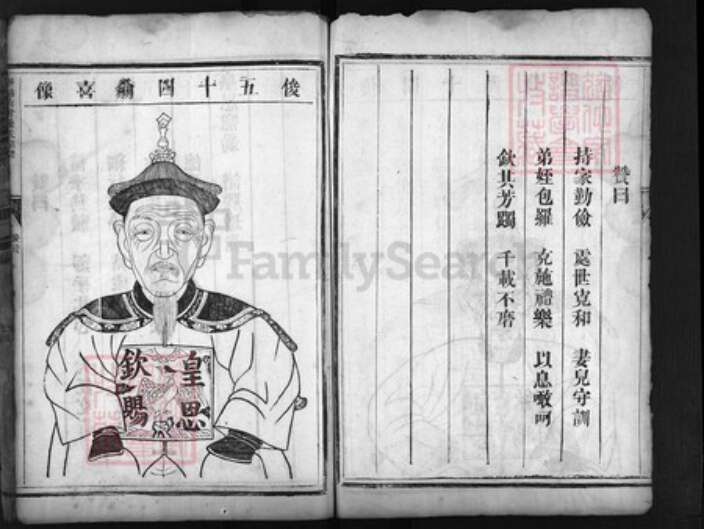 贊曰
持家勤儉 處世克和 妻兒守訓
弟姪包羅 克施禮樂 以息
欽其芳躅 千載不磨
俊五十四喜像
皇恩
欽賜
FamilySearch